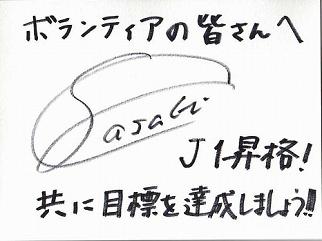 ボランティアの皆さんへ
Sasaki
J1昇格!
共に目標を達成しましょう!!